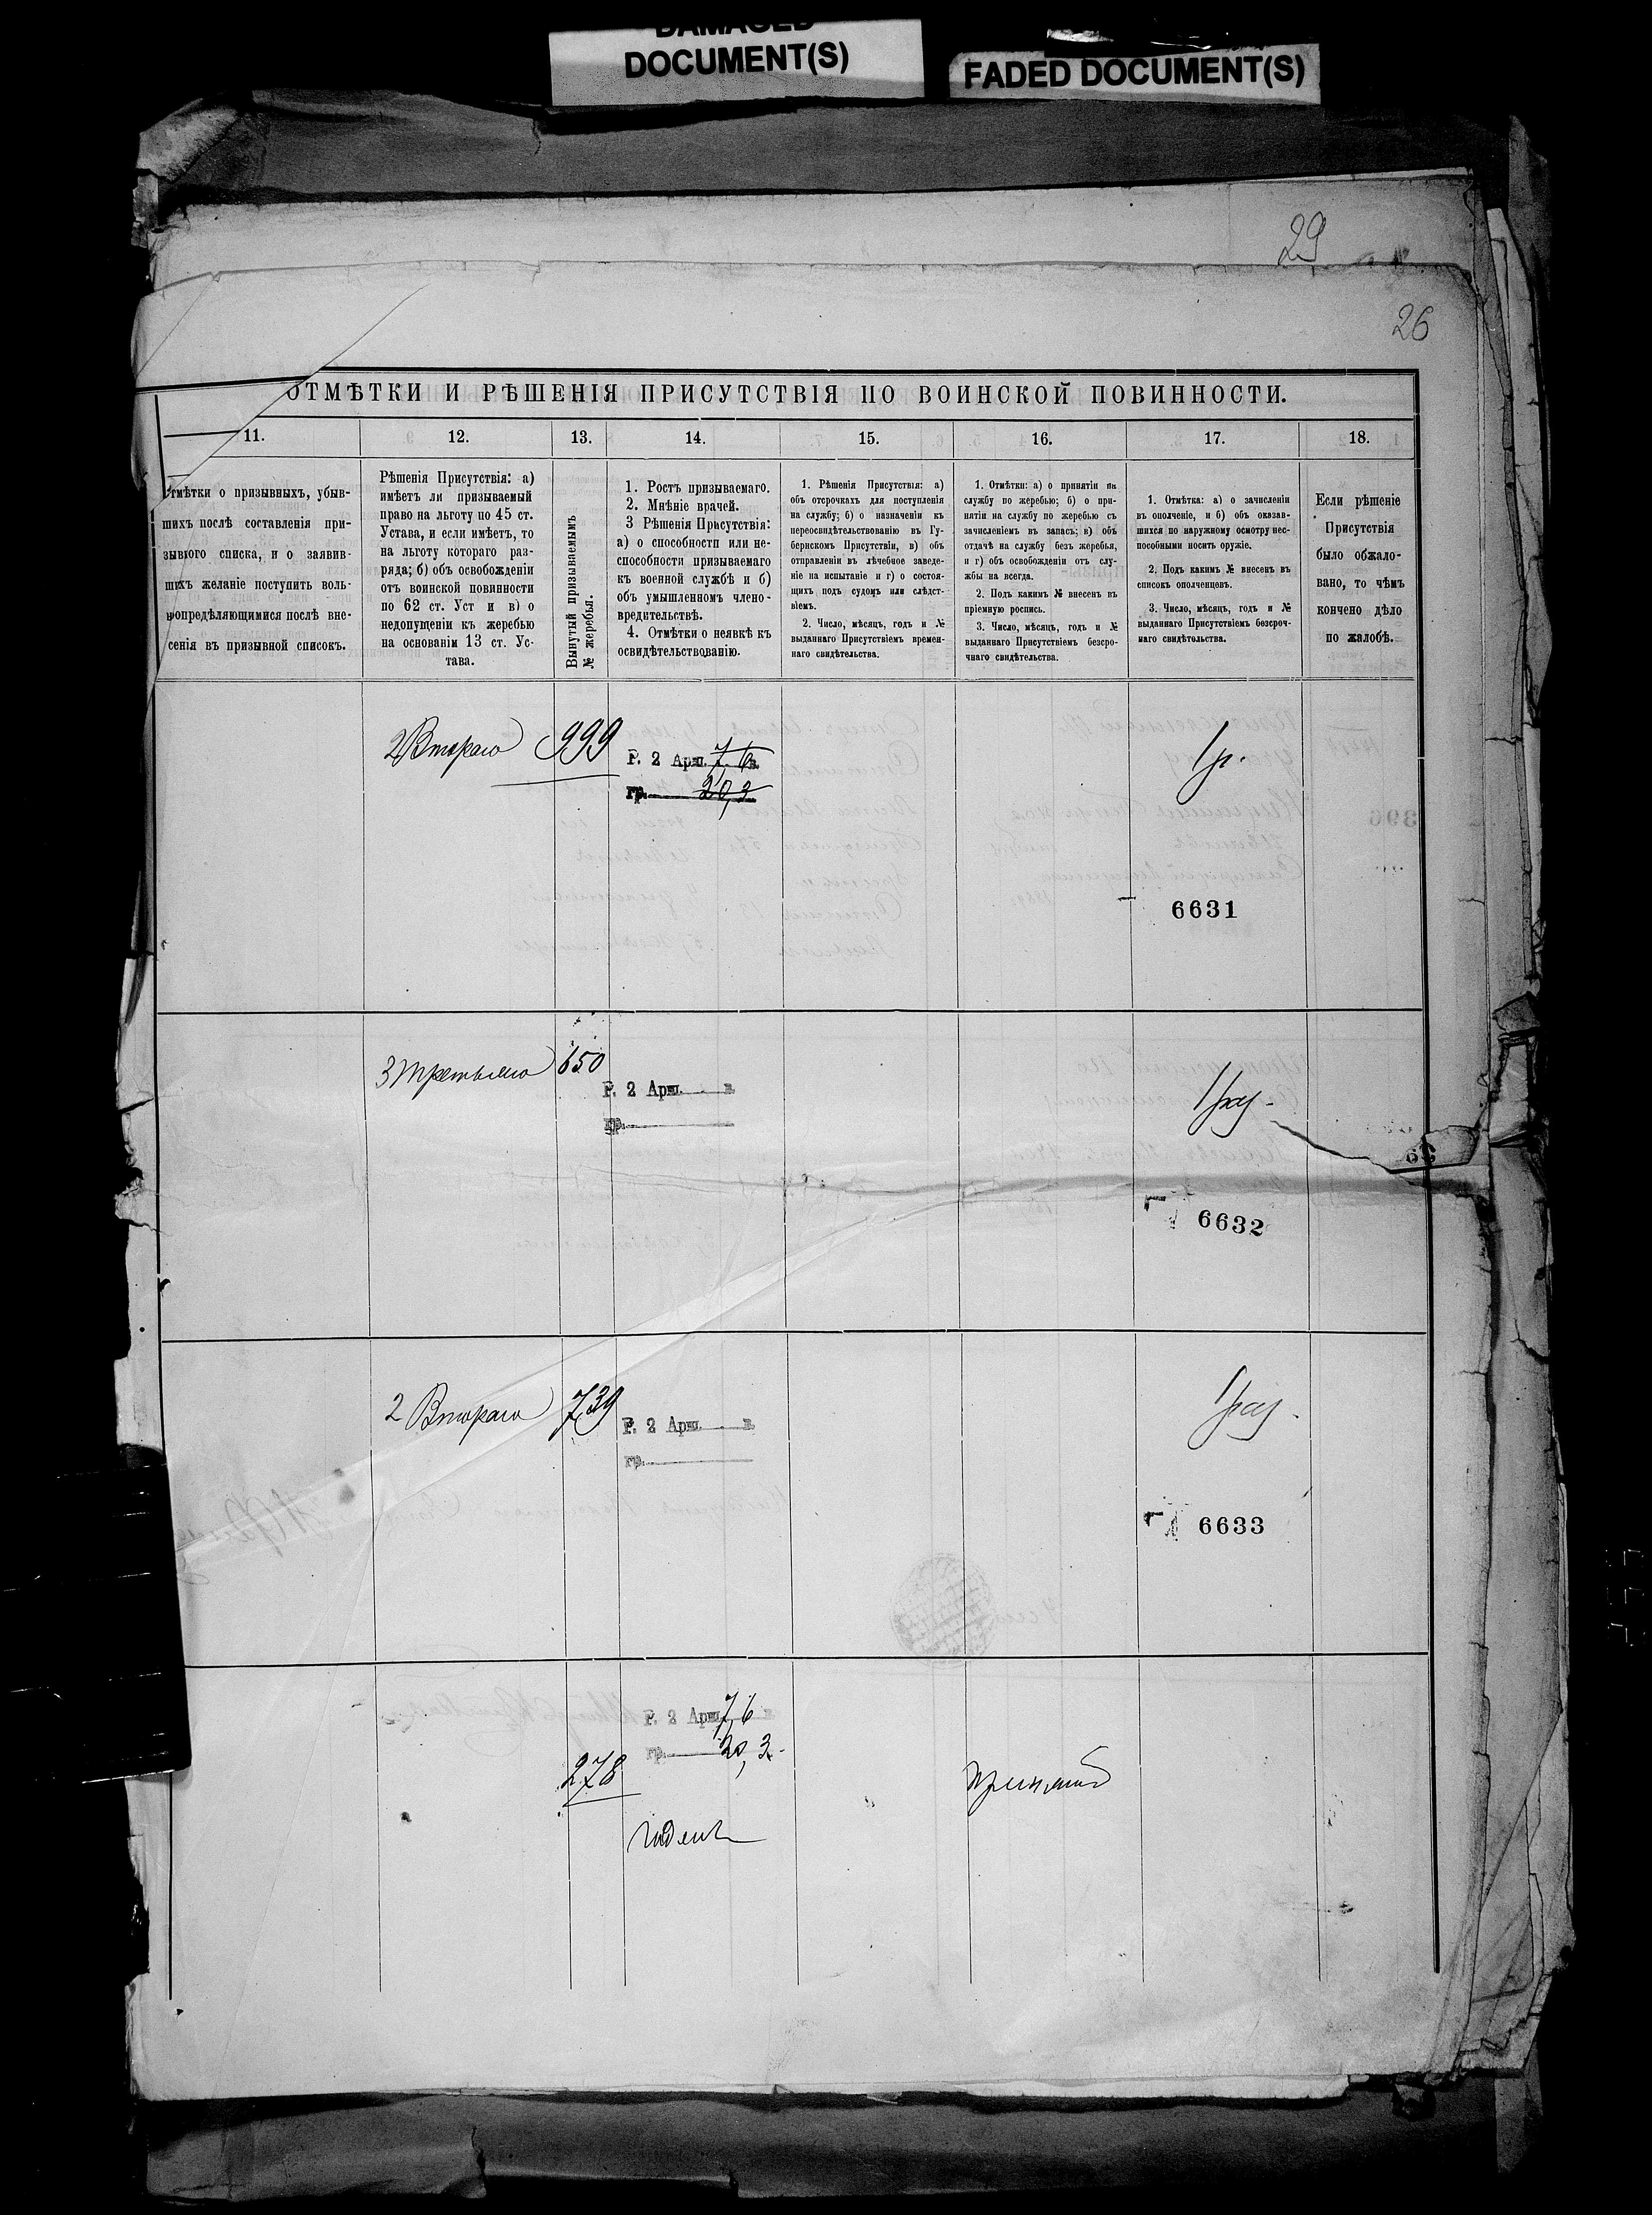 DAMAGED
DOCUMENT(S)
FADED DOCUMENT(S)
29
26
ОТМѢТКИ И РѢШЕНІЯ ПРИСУТСТВІЯ ПО ВОИНСКОЙ ПОВИННОСТИ.
11.
12.
13.
14.
15.
16.
17.
18.
Отмѣтки о призывныхъ, убыв-
шихъ послѣ составленія при-
зывного списка, и о заявив-
шихъ желаніе поступить воль-
ноопредѣляющимися послѣ вне-
сенія въ призывной списокъ.
Рѣшенія Присутствія: а)
имѣетъ ли призываемый
право на льготу по 45 ст.
Устава, и если имѣетъ, то
на льготу котораго раз-
ряда; б) объ освобожденіи
отъ воинской повинности
по 62 ст. Уст и в) о
недопущеніи къ жеребью
на основаніи 13 ст. Ус-
тава.
Вынутый призываемымъ
№ жеребья.
1. Ростъ призываемаго.
2. Мнѣніе врачей.
3 Рѣшенія Присутствія:
а) о способности или не-
способности призываемаго
къ военной службѣ и б)
объ умышленномъ члено-
вредительствѣ.
4. Отмѣтки о неявкѣ къ
освидѣтельствованію.
1. Рѣшенія Присутствія: а)
объ отсрочкахъ для поступленія
на службу; б) о назначеніи къ
переосвидѣтельствованію въ Гу-
бернскомъ Присутствіи, в) объ
отправленіи въ лѣчебное заведе-
ніе на испытаніе и г) о состоя-
щихъ подъ судомъ или слѣдст-
віемъ.
2. Число, мѣсяцъ, годъ и №
выданнаго Присутствіемъ времен-
наго свидѣтельства.
1. Отмѣтки: а) о принятіи на
службу по жеребью; б) о при-
нятіи на службу по жеребью съ
зачисленіемъ въ запасъ; в) объ
отдачѣ на службу безъ жеребья,
и г) объ освобожденіи отъ слу-
жбы на всегда.
2. Подъ какимъ № внесенъ въ
пріемную роспись.
3. Число, мѣсяцъ, годъ и №
выданнаго Присутствіемъ безсро-
чнаго свидѣтельства.
1. Отмѣтка: а) о зачисленіи
въ ополченіе, и б) объ оказав-
шихся по наружному осмотру нес-
пособными носить оружіе.
2. Подъ какимъ № внесенъ въ
списокъ ополченцевъ.
3. Число, мѣсяцъ, годъ и №
выданнаго Присутствіемъ безсроч-
наго свидѣтельства.
Если рѣшеніе
Присутствія
было обжало-
вано, то чѣмъ
кончено дѣло
по жалобѣ.
2 Втораго
999
Р. 2 Арш. 7,6 в.
гр. 20,3
1 р.
6631
3 Третьяго
650
Р. 2 Арш. в.
гр.
1 раз.
6632
2 Втораго
739
Р. 2 Арш. в.
гр.
1 раз.
6633
278
Р. 2 Арш. 7,6 в
гр. 20,3
Годенъ
принятъ